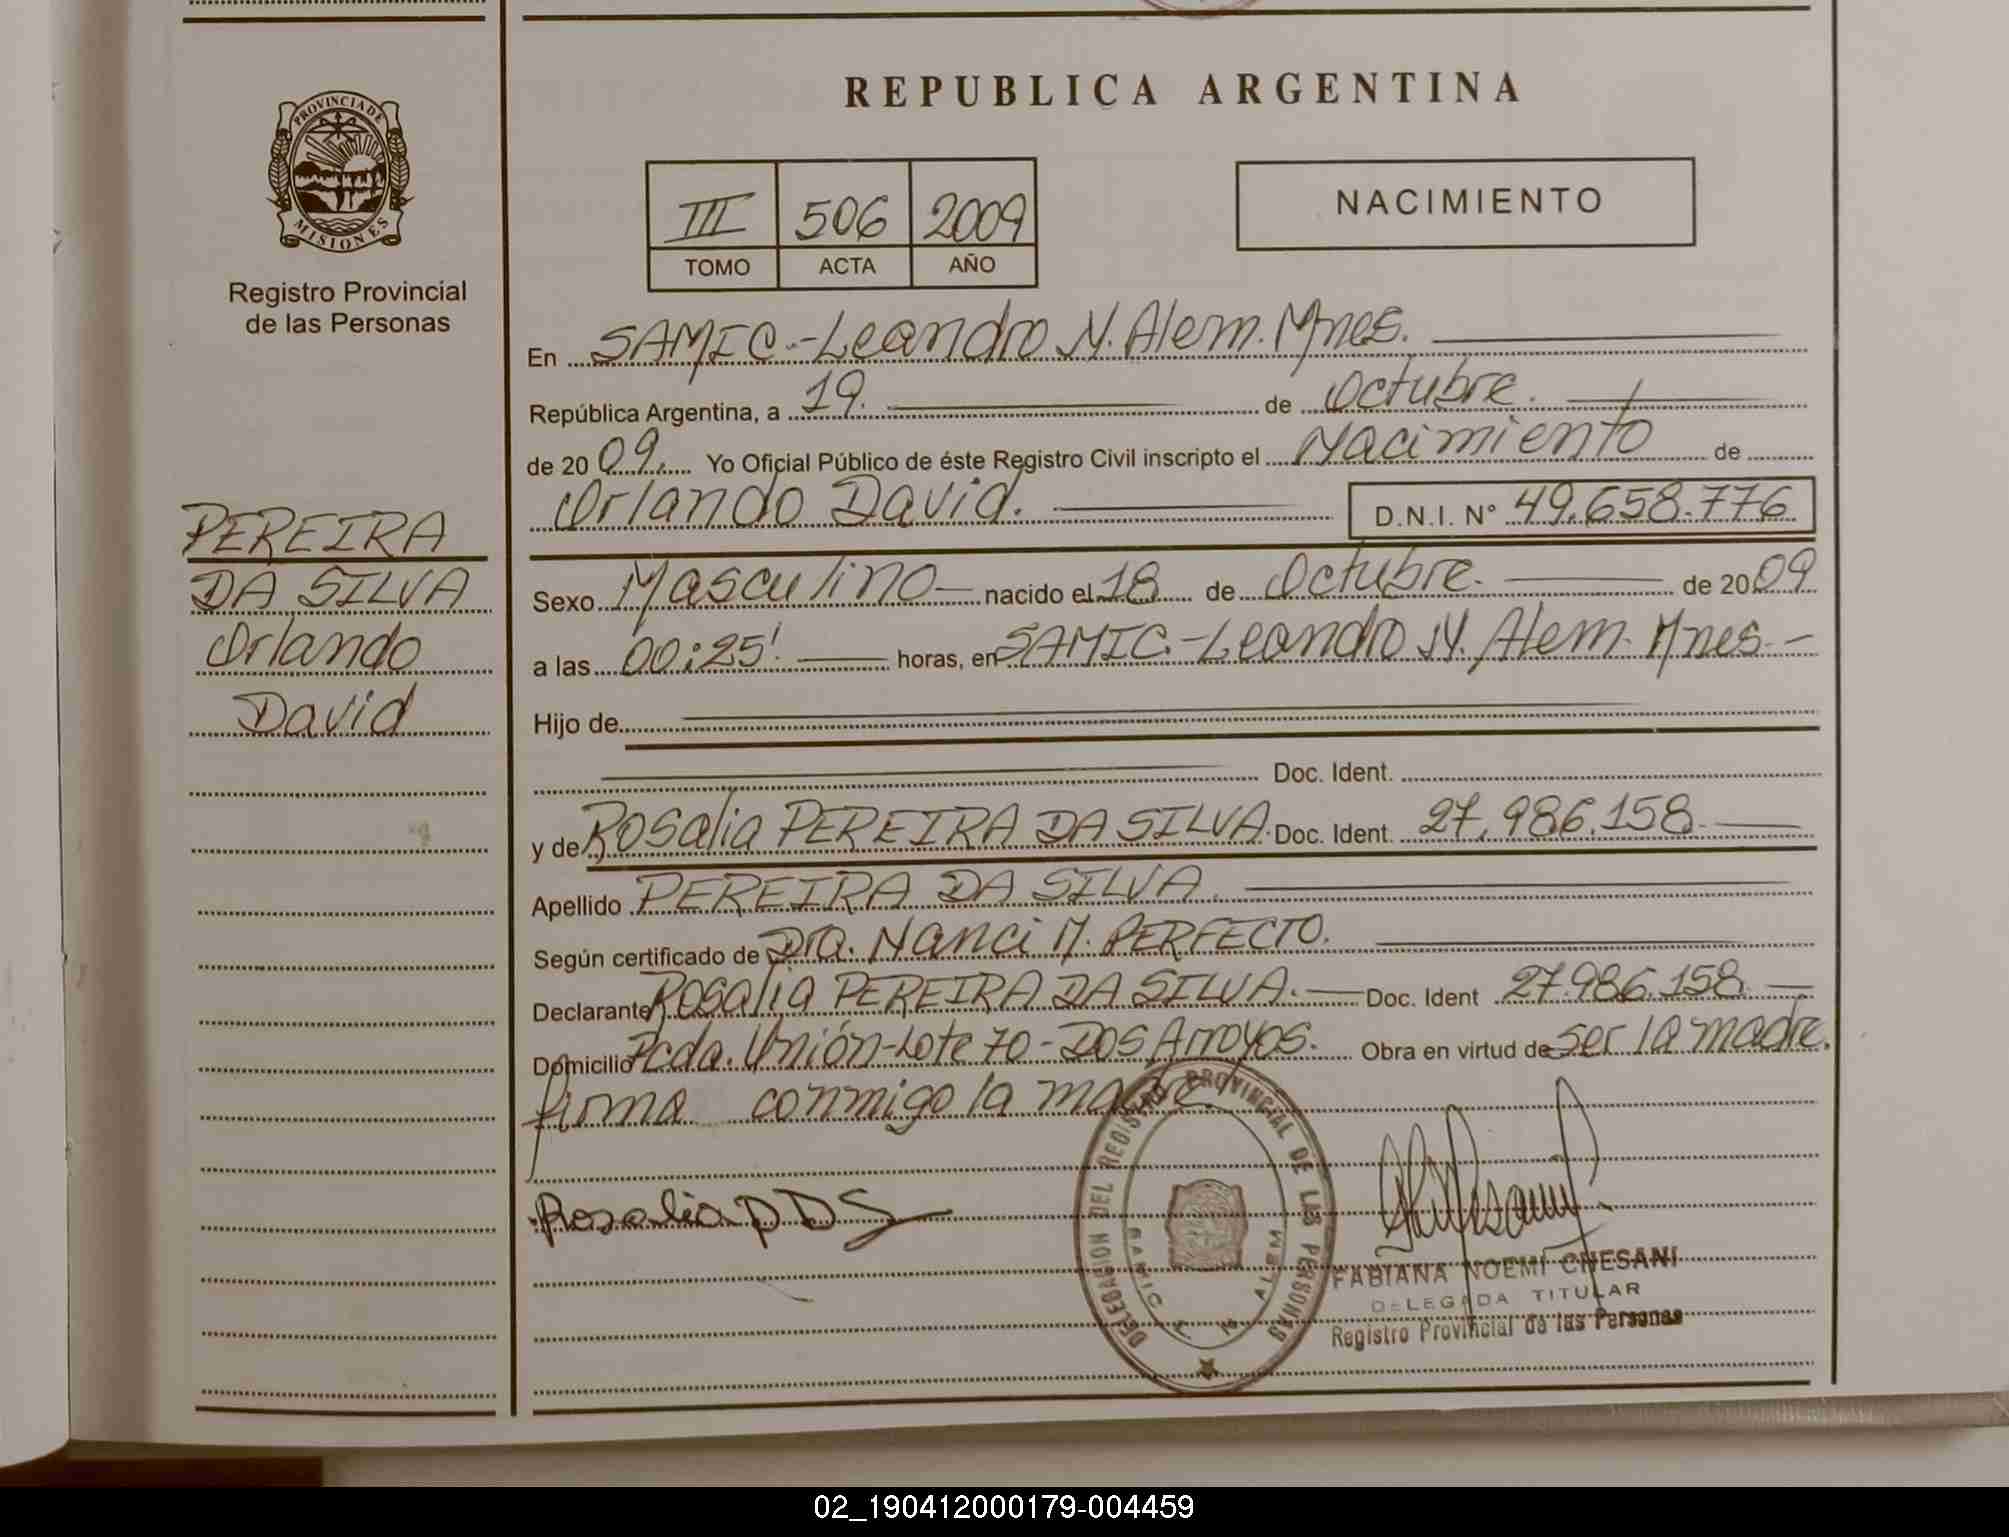 PROVINCIA DE
MISIONES
Registro Provincial
de las Personas
PEREIRA
DA SILVA
Orlando
David
REPUBLICA ARGENTINA
III 506 2009
TOMO ACTA AÑO
NACIMIENTO
En SAMIC.-Leandro N. Alem. Mnes.
República Argentina, a 19. de Octubre.
de 20 09. Yo Oficial Público de éste Registro Civil inscripto el Nacimiento de
Orlando David. D.N.I. N° 49.658.776
Sexo Masculino nacido el 18 de Octubre. de 20 09
a las 00:25' horas, en SAMIC.-Leandro N. Alem. Mnes.-
Hijo de
Doc. Ident.
y de Rosalia PEREIRA DA SILVA. Doc. Ident. 27.986.158
Apellido PEREIRA DA SILVA.
Según certificado de Dra. Nanci M. PERFECTO.
Declarante Rosalia PEREIRA DA SILVA.- Doc. Ident 27.986.158
Domicilio Pcda. Unión-Lote 70-Dos Arroyos. Obra en virtud de ser la madre.
firma conmigo la madre
Rosalia P D S
DELEGACION DEL REGISTRO PROVINCIAL DE LAS PERSONAS
SAMIC L N ALEM
FABIANA NOEMI CHESANI
DELEGADA TITULAR
Registro Provincial de las Personas
02_190412000179-004459